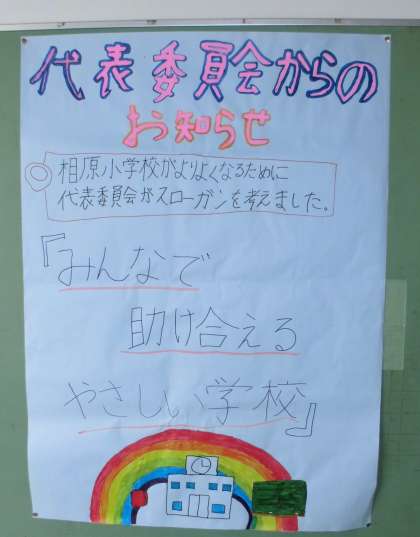 代表委員会からの
お知らせ
◎相原小学校がよりよくなるために
代表委員会がスローガンを考えました。
『みんなで
助け合える
やさしい学校』